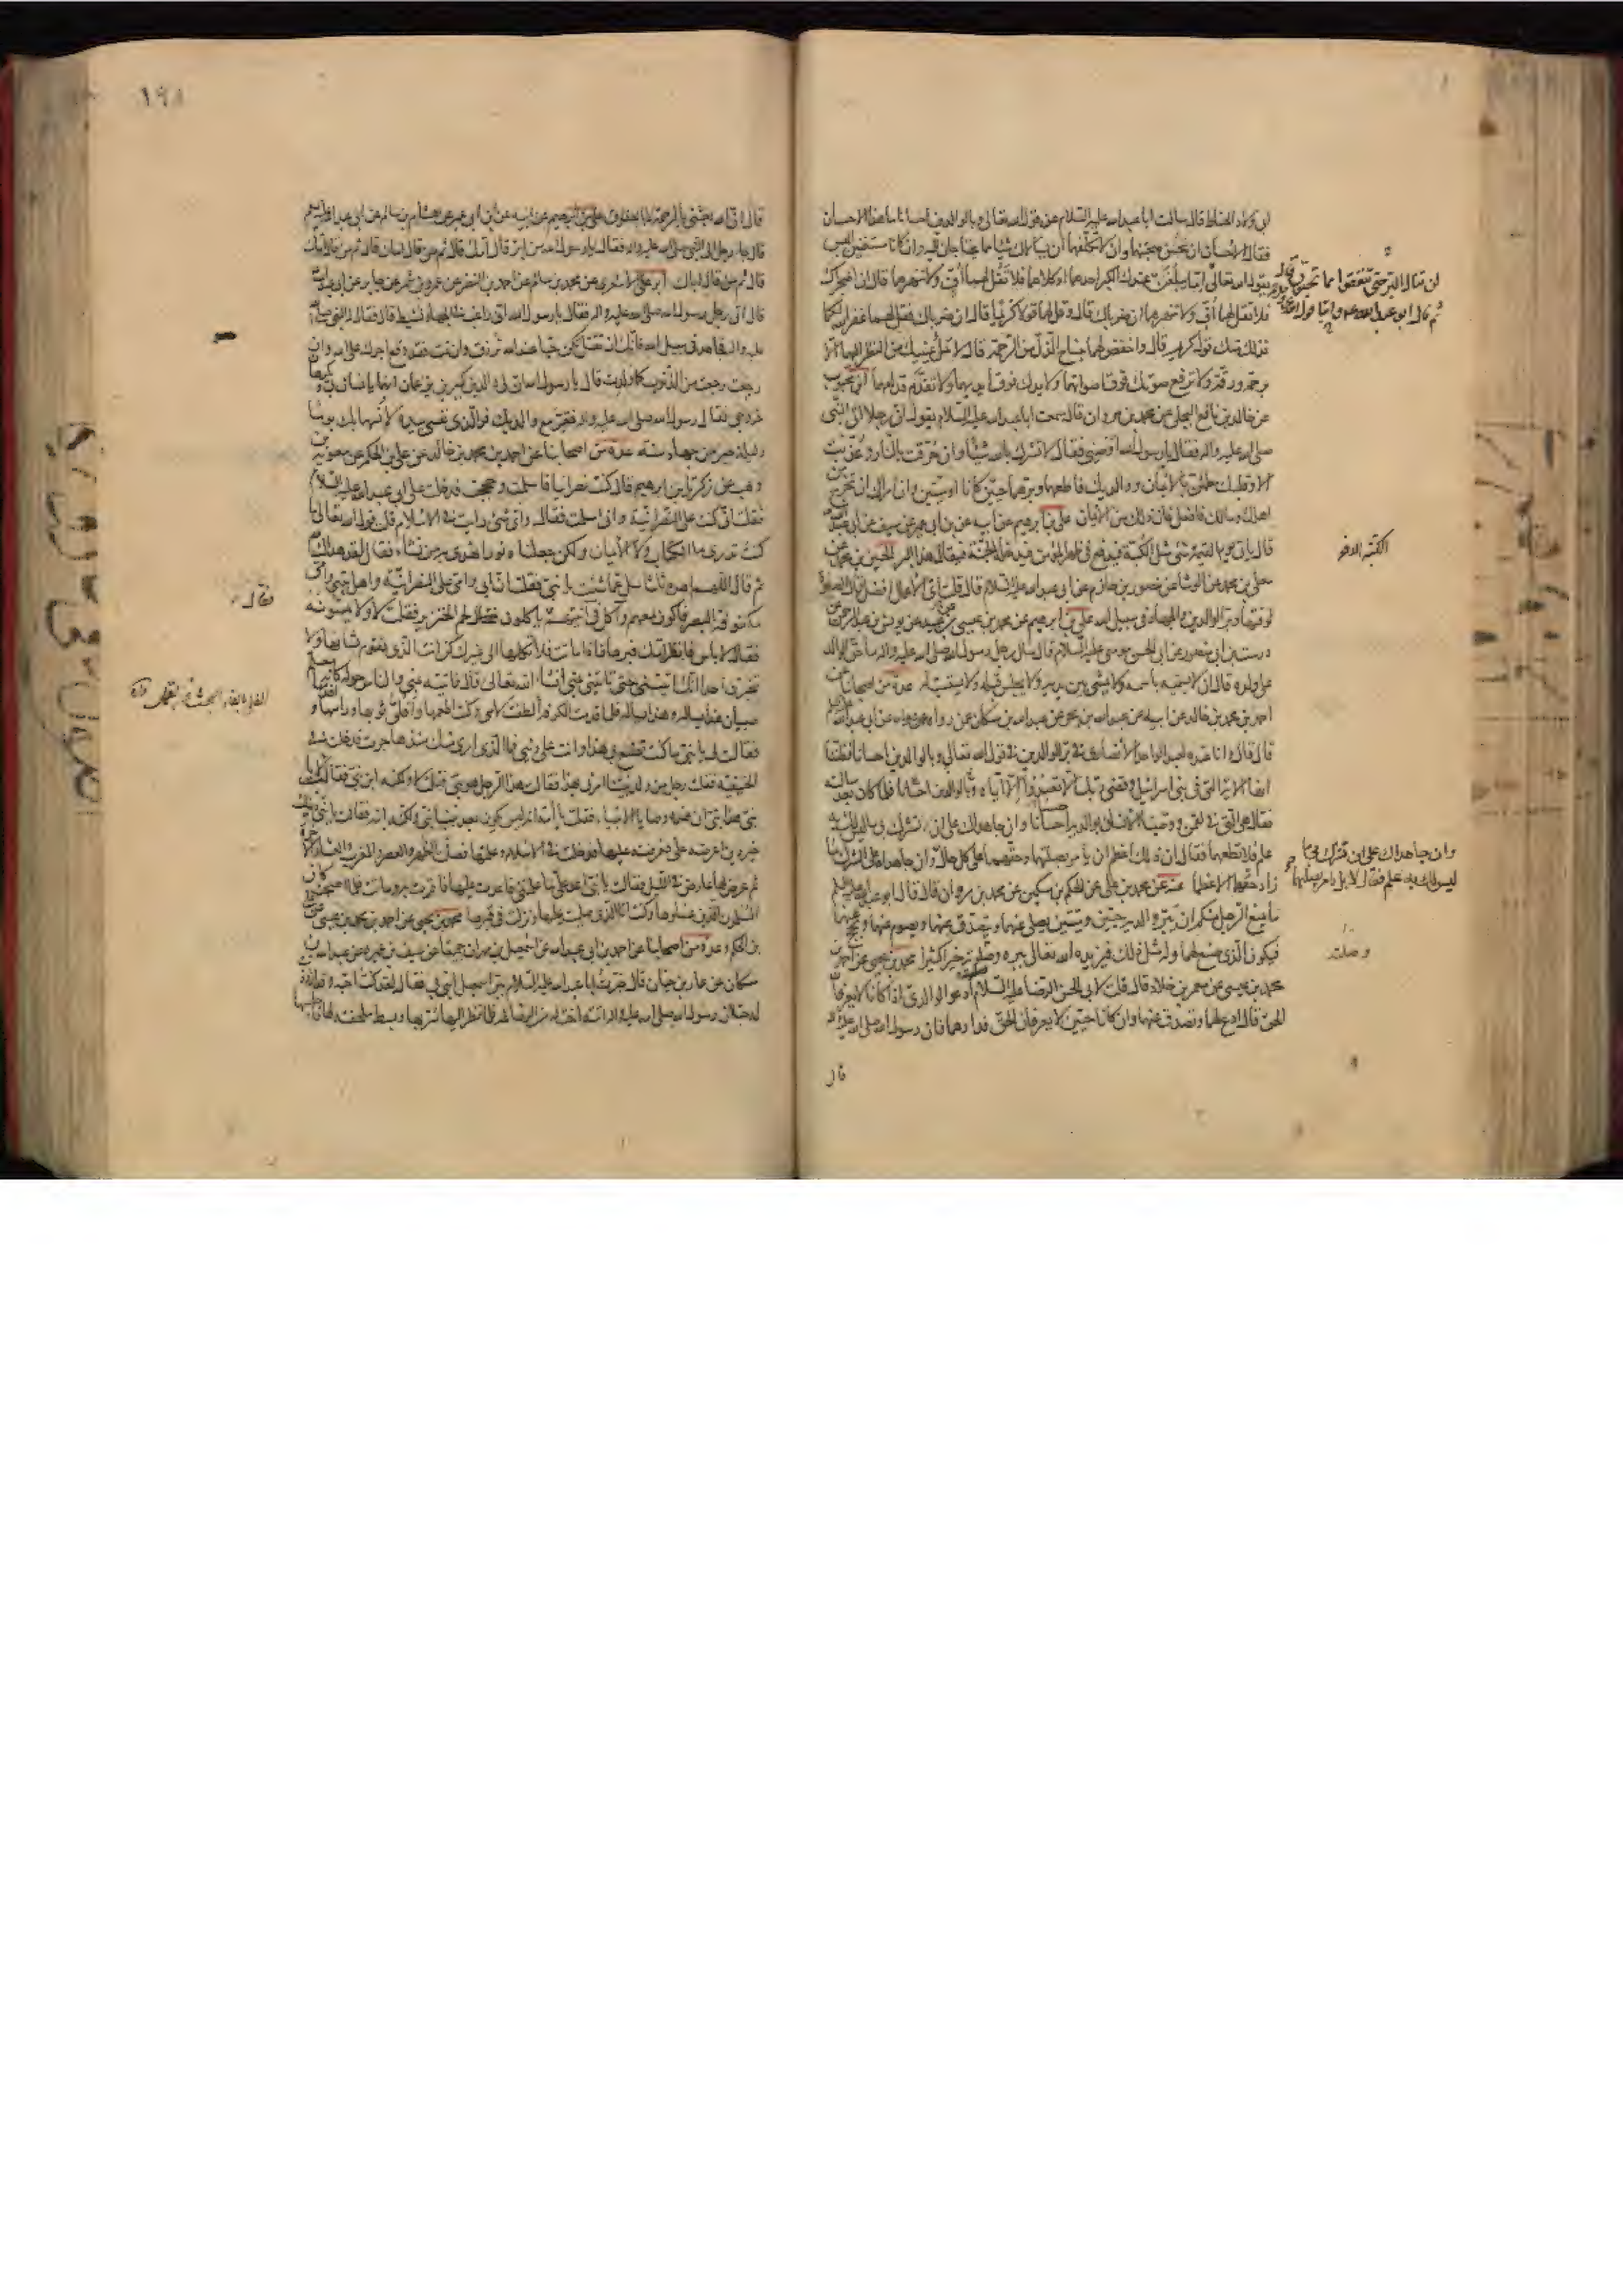 ابی ولاد الحناط قال سالت ابا عبد الله علیه السلام عن قول الله تعالی وبالوالدین احسانا ما هذا الاحسان
فقال الاحسان ان تحسن صحبتهما وان لا تکلفهما ان یسالاک شیئا مما یحتاجان الیه وان کانا مستغنیین الیس
یقول الله تعالی اما یبلغن عندک الکبر احدهما او کلاهما فلا تقل لهما اف ولا تنهرهما قال ان اضجراک
فلا تقل لهما اف ولا تنهرهما ان ضرباک قال وقل لهما قولا کریما قال ان ضرباک فقل لهما غفر الله لکما
فذلک منک قول کریم قال واخفض لهما جناح الذل من الرحمة قال لا تملأ عینیک من النظر الیهما الا
برحمة ورقة ولا ترفع صوتک فوق اصواتهما ولا یدک فوق ایدیهما ولا تقدم قدامهما ابن محبوب
عن خالد بن نافع البجلی عن محمد بن مروان قال سمعت ابا عبد الله علیه السلام یقول ان رجلا اتی النبی
صلی الله علیه واله فقال یا رسول الله اوصنی فقال لا تشرک بالله شیئا وان حرقت بالنار وعذبت
الا وقلبک مطمئن بالایمان ووالدیک فاطعهما وبرهما حیین کانا او میتین وان امراک ان تخرج من
اهلک ومالک فافعل فان ذلک من الایمان علی بن ابرهیم عن ابیه عن بن ابی عمیر عن سیف عن ابی عبد الله
قال یاتی یوم القیمة شئ مثل الکبة فیدفع فی ظهر المؤمن فیدخله الجنة فیقال هذا البر الحسین بن محمد عن
معلی بن محمد عن الوشا عن منصور بن حازم عن ابی عبد الله علیه السلام قال قلت ای الاعمال افضل قال الصلوة
لوقتها وبر الوالدین والجهاد فی سبیل الله علی بن ابرهیم عن محمد بن عیسی بن عبید عن یونس بن عبد الرحمن عن
درست بن ابی منصور عن ابی الحسن موسی علیه السلام قال سال رجل رسول الله صلی الله علیه واله ما حق الوالد
علی ولده قال ان لا یسمیه باسمه ولا یمشی بین یدیه ولا یجلس قبله ولا یستسب له عدة من اصحابنا عن
احمد بن محمد بن خالد عن ابیه عن عبد الله بن بحر عن عبد الله بن مسکان عن من رواه عن ابی عبد الله
قال قال وانا عنده لعبد الواحد الانصاری فی بر الوالدین فی قول الله تعالی وبالوالدین احسانا فظننا
انها الایة التی فی بنی اسرائیل وقضی ربک الا تعبدوا الا ایاه وبالوالدین احسانا فلما کان بعد سالته
فقال هی التی فی لقمن ووصینا الانسان بوالدیه احسانا وان جاهداک علی ان تشرک بی ما لیس لک به
علم فلا تطعهما فقال ان ذلک اعظم ان یامر بصلتهما وحقهما علی کل حال وان جاهداک علی الشرک ما
زاد حقهما الا عظما عنه عن محمد بن علی عن الحکم بن مسکین عن محمد بن مروان قال قال ابو عبد الله
ما یمنع الرجل منکم ان یبر والدیه حیین ومیتین یصلی عنهما ویتصدق عنهما ویصوم عنهما ویحج عنهما
فیکون الذی صنع لهما وله مثل ذلک فیزیده الله تعالی ببره وصلته خیرا کثیرا محمد بن یحیی عن احمد بن
محمد بن عیسی عن معمر بن خلاد قال قلت لابی الحسن الرضا علیه السلام ادعو لوالدی اذا کانا لا یعرفان
الحق قال ادع لهما وتصدق عنهما وان کانا حیین لا یعرفان الحق فدارهما فان رسول الله صلی الله علیه واله
قال
لن تنالوا البر حتی تنفقوا مما تحبون
ثم قال ابو عبد الله علیه السلام واما قول الله
وان جاهداک علی ان تشرک بی ما
لیس لک به علم فقال لا بل یامر بصلتهما
وصلته
١٩٨
قال ان الله بعثنی بالرحمة لا بالعقوق علی بن ابرهیم عن ابیه عن ابن ابی عمیر عن هشام بن سالم عن ابی عبد الله
قال جاء رجل الی النبی صلی الله علیه واله فقال یا رسول الله من ابر قال امک قال ثم من قال امک قال ثم من قال امک
قال ثم من قال اباک ابو علی الاشعری عن محمد بن سالم عن احمد بن النضر عن عمرو بن شمر عن جابر عن ابی عبد الله
قال اتی رجل رسول الله صلی الله علیه واله فقال یا رسول الله انی راغب فی الجهاد نشیط قال فقال له النبی صلی الله
علیه واله فجاهد فی سبیل الله فانک ان تقتل تکن حیا عند الله ترزق وان تمت فقد وقع اجرک علی الله وان
رجعت رجعت من الذنوب کما ولدت قال یا رسول الله ان لی والدین کبیرین یزعمان انهما یانسان بی ویکرهان
خروجی فقال رسول الله صلی الله علیه واله فقر مع والدیک فوالذی نفسی بیده لانسهما بک یوما
ولیلة خیر من جهاد سنة عدة من اصحابنا عن احمد بن محمد بن خالد عن علی بن الحکم عن معویة بن
وهب عن زکریا بن ابرهیم قال کنت نصرانیا فاسلمت وحججت فدخلت علی ابی عبد الله علیه السلام
فقلت انی کنت علی النصرانیة وانی اسلمت فقال وای شئ رایت فی الاسلام قلت قول الله تعالی ما
کنت تدری ما الکتاب ولا الایمان ولکن جعلناه نورا نهدی به من نشاء فقال لقد هداک الله
ثم قال اللهم اهده ثلاثا سل عما شئت یا بنی فقلت ان ابی وامی علی النصرانیة واهل بیتی وامی
مکفوفة البصر فاکون معهم واکل فی انیتهم یاکلون لحم الخنزیر فقلت لا ولا یمسونه
فقال لا باس فانظر امک فبرها فاذا ماتت فلا تکلها الی غیرک کن انت الذی تقوم بشانها ولا
تخبرن احدا انک اتیتنی حتی تاتینی بمنی انشاء الله تعالی قال فاتیته بمنی والناس حوله کانه معلم
صبیان هذا یساله وهذا یساله فلما قدمت الکوفة الطفت لامی وکنت اطعمها وافلی ثوبها وراسها واخدمها
فقالت لی یا بنی ما کنت تصنع بی هذا وانت علی دینی فما الذی اری منک منذ هاجرت فدخلت فی
الحنیفیة فقلت رجل من ولد نبینا امرنی بهذا فقالت هذا الرجل هو نبی فقلت لا ولکنه ابن نبی فقالت یا
بنی هذا نبی ان هذه وصایا الانبیاء فقلت یا امه انه لیس یکون بعد نبینا نبی ولکنه ابنه فقالت یا بنی دینک
خیر دین اعرضه علی فعرضته علیها فدخلت فی الاسلام وعلمتها فصلت الظهر والعصر والمغرب والعشاء الاخرة
ثم عرض لها عارض فی اللیل فقالت یا بنی اعد علی ما علمتنی فاعدت علیها فاقرت به وماتت فلما اصبحت کان
المسلمون الذین غسلوها وکنت انا الذی صلیت علیها ونزلت فی قبرها محمد بن یحیی عن احمد بن محمد بن عیسی عن علی
بن الحکم وعدة من اصحابنا عن احمد بن ابی عبد الله عن اسمعیل بن مهران جمیعا عن سیف بن عمیرة عن عبد الله بن
مسکان عن عمار بن حیان قال خبرت ابا عبد الله علیه السلام ببر اسمعیل ابنی بی فقال لقد کنت احبه وقد ازددت
له حبا ان رسول الله صلی الله علیه واله اتته اخت له من الرضاعة فلما نظر الیها سر بها وبسط ملحفته لها فاجلسها
فقال